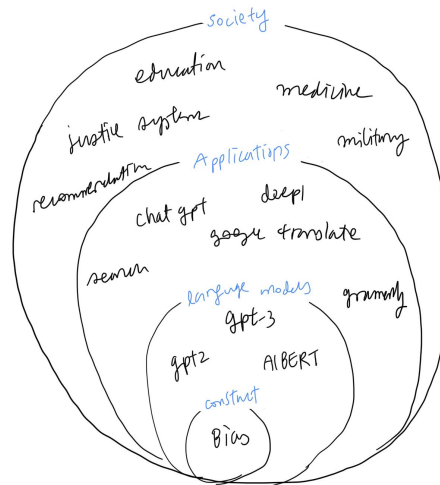 Society
education
medicine
justice system
military
recommendation
Applications
chat gpt
deepl
google translate
search
language models
grammarly
gpt-3
gpt2
AlBERT
construct
Bias